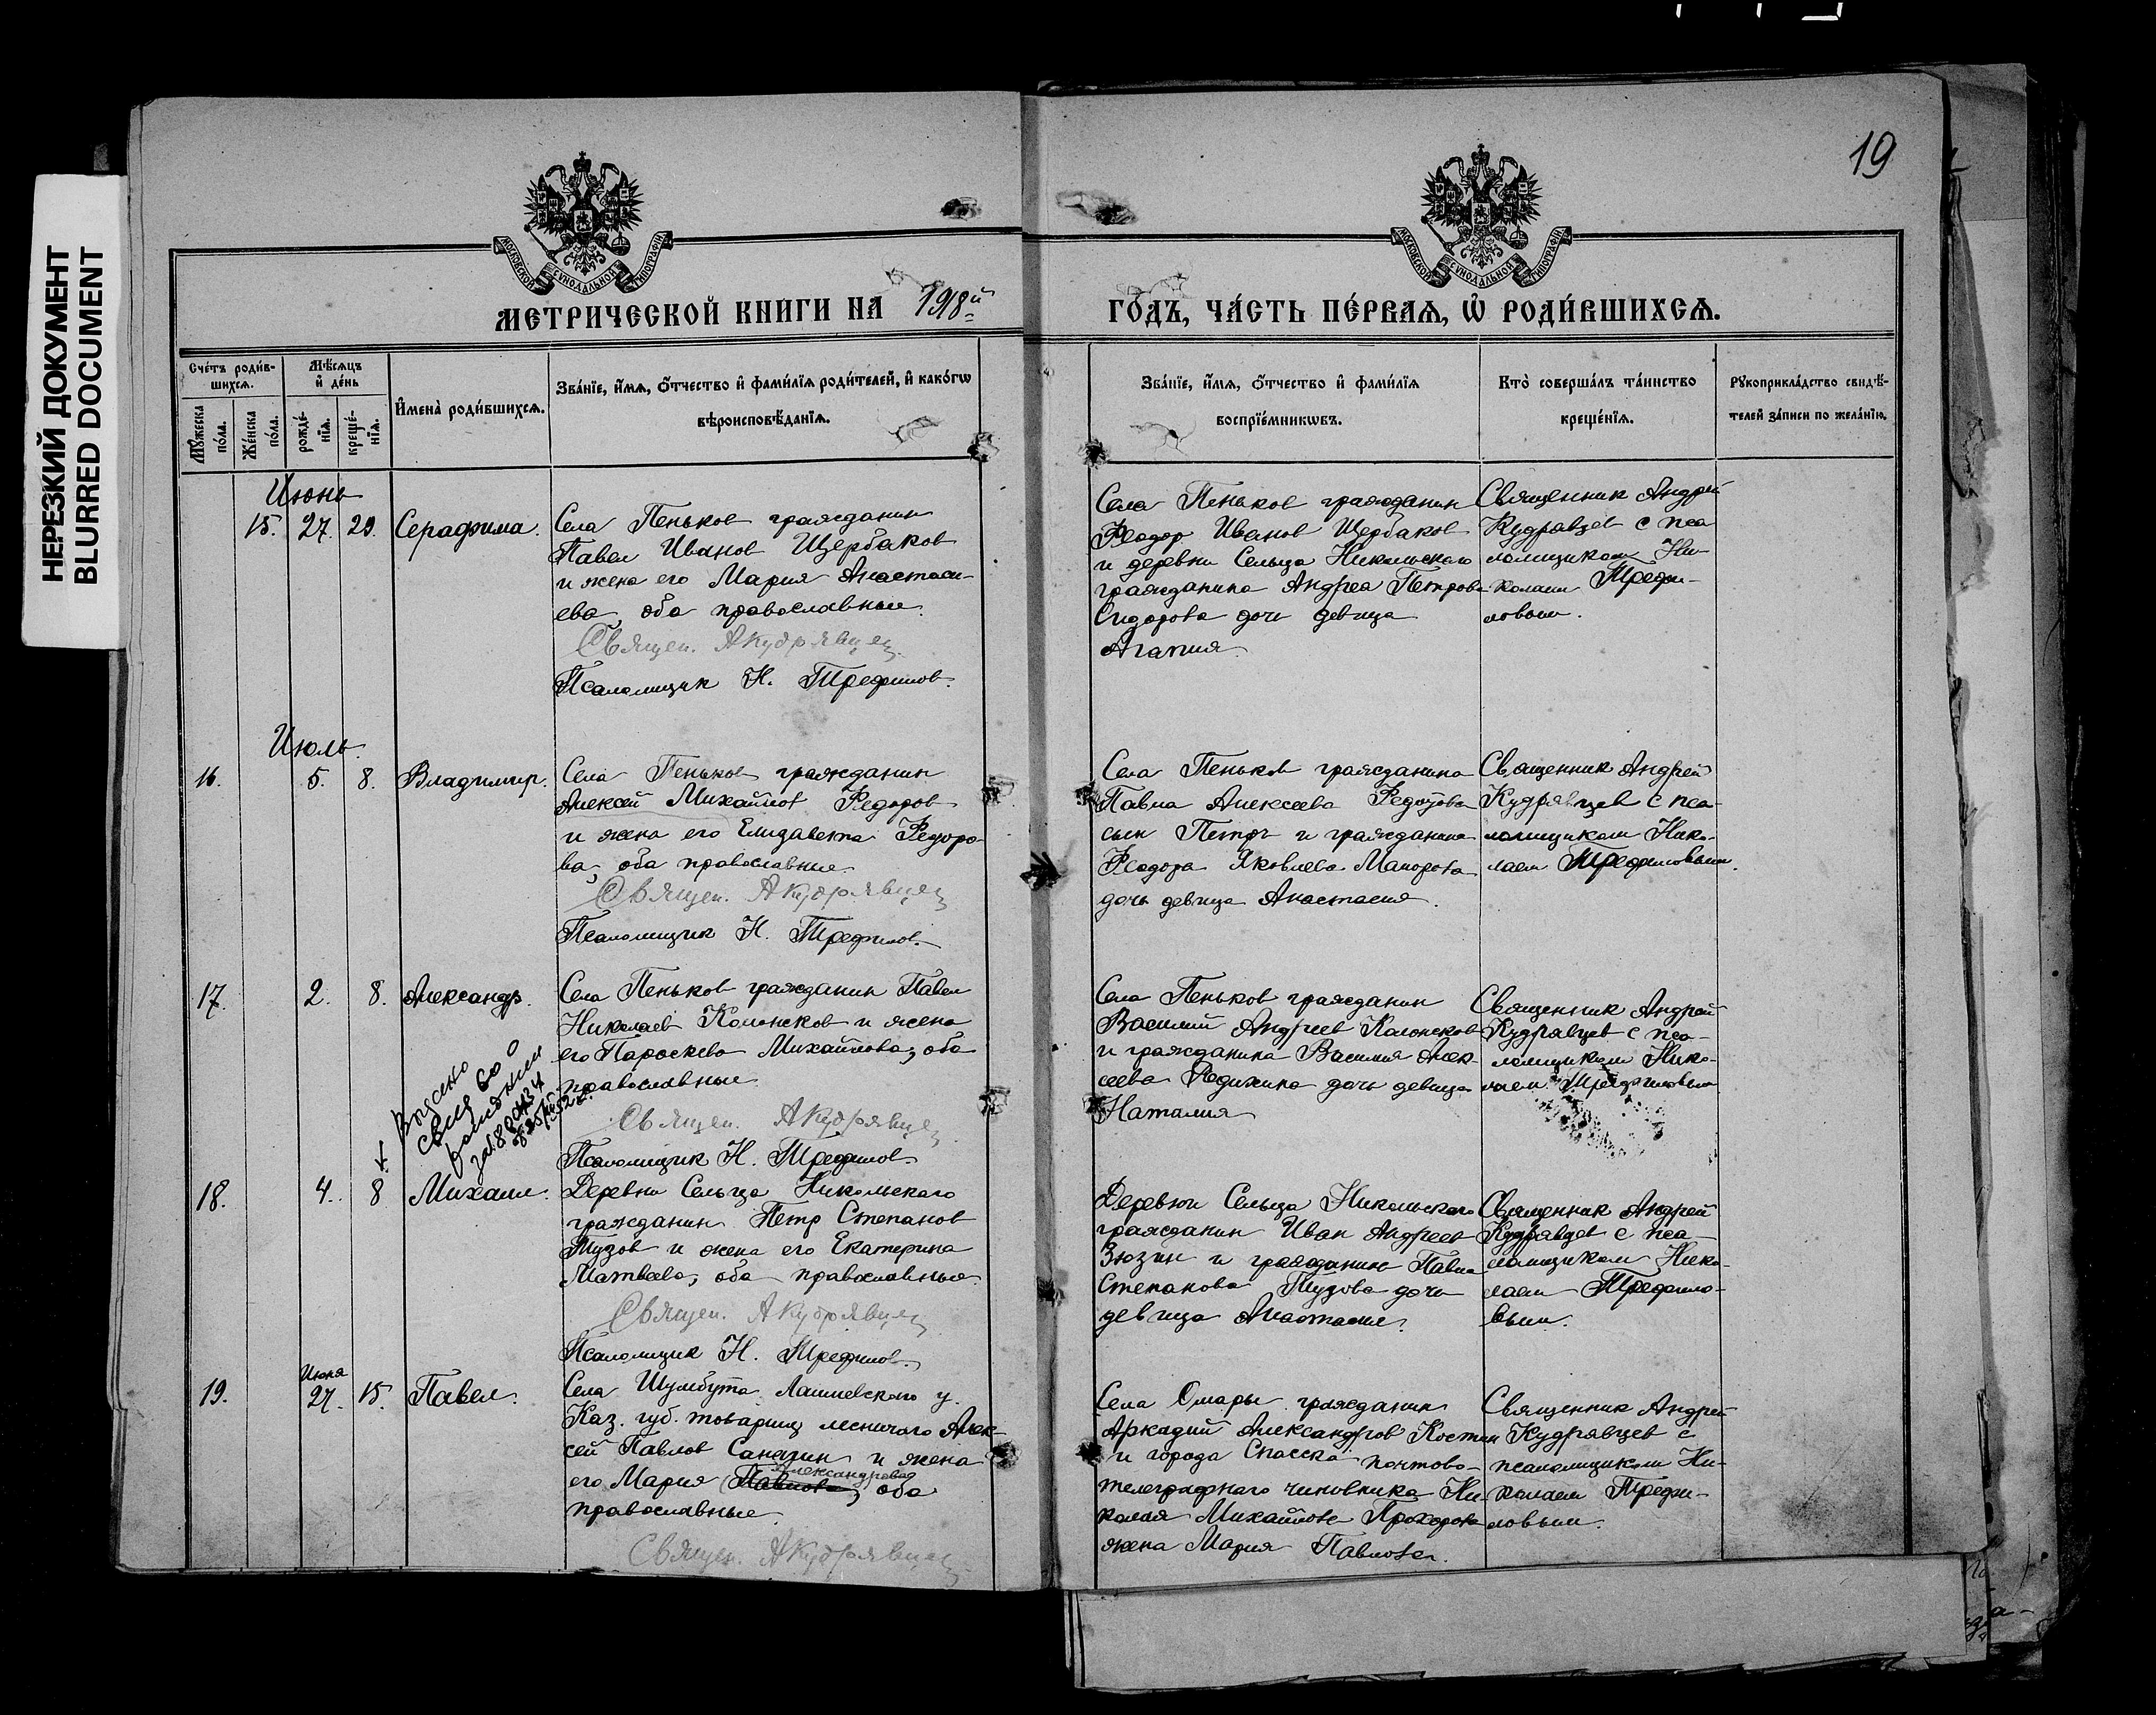 НЕРЕЗКИЙ ДОКУМЕНТ
BLURRED DOCUMENT
19
МОСКОВСКОЙ СѴНОДАЛЬНОЙ ТИПОГРАФІИ
МОСКОВСКОЙ СѴНОДАЛЬНОЙ ТИПОГРАФІИ
МЕТРИЧЕСКОЙ КНИГИ НА 1918й
ГО́ДЪ, ЧА́СТЬ ПЕ́РВАѦ, Ѡ҆ РОДИ́ВШИХСѦ.
Сче́тъ роди́в-
шихсѧ.
Мꙋ́жеска
по́ла.
Же́нска
по́ла.
Мѣ́сѧцъ
и҆ де́нь
рожде́-
нїѧ.
креще́-
нїѧ.
И҆мена̀ роди́вшихсѧ.
Зва́нїе, и҆́мѧ, ѻ҆́тчество и҆ фами́лїѧ роди́телей, и҆ како́гѡ
вѣроисповѣ́данїѧ.
Зва́нїе, и҆́мѧ, ѻ҆́тчество и҆ фами́лїѧ
воспрїе́мникѡвъ.
Кто̀ соверша́лъ та́инство
креще́нїѧ.
Рꙋкоприкла́дство свидѣ́-
телей за́писи по жела́нїю.
Июнь
15. 27. 29. Серафима.
Села Пеньков гражданин
Павел Иванов Щербаков
и жена его Мария Анастаси-
ева, оба православные.
Священ. АКудрявцев
Псаломщик Н. Трефилов.
Села Пеньков гражданин
Феодор Иванов Щербаков
и деревни Сельца Никольского
гражданина Андрея Петрова
Сидорова дочь девица
Агапия.
Священник Андрей
Кудрявцев с пса
ломщиком Ни-
колаем Трефи-
ловым.
Июль.
16. 5. 8. Владимир.
Села Пеньков гражданин
Алексей Михайлов Федоров
и жена его Елизавета Федоро-
ва, оба православные.
Священ. АКудрявцев
Псаломщик Н. Трефилов.
Села Пеньков гражданина
Павла Алексеева Федотова
сын Петр и гражданина
Феодора Яковлева Майорова
дочь девица Анастасия.
Священник Андрей
Кудрявцев с пса-
ломщиком Нико-
лаем Трефиловым.
17. 2. 8. Александр.
Села Пеньков гражданин Павел
Николаев Колонсков и жена
его Параскева Михайлова, оба
православные.
Священ. АКудрявцев
Псаломщик Н. Трефилов.
Села Пеньков гражданин
Василий Андреев Колонсков
и гражданина Василия Алек-
сеева Федихина дочь девица
Наталия
Священник Андрей
Кудрявцев с пса-
ломщиком Нико-
лаем Трефиловым
свид во
18. 4. 8 Михаил.
Деревни Сельца Никольского
гражданин Петр Степанов
Пузов и жена его Екатерина
Матвеева, оба православные.
Священ. АКудрявцев
Псаломщик Н. Трефилов.
Деревни Сельца Никольского
гражданин Иван Андреев
Зюзин и гражданина Павла
Степанова Пузова дочь
девица Анастасия.
Священник Андрей
Кудрявцев с пса-
ломщиком Нико-
лаем Трефило-
вым.
Июня
19. 27. 15. Павел.
Села Шумбута Лаишевского у.
Каз. губ. товарищ лесничого Алек-
сей Павлов и жена
Александрова
его Мария Павлова, оба
православные.
Священ. АКудрявцев
Села Омары гражданин
Аркадий Александров Костин
и города Спасска почтово-
телеграфного чиновника Ни-
колая Михайлова Прохорова
жена Мария Павлова.
Священник Андрей
Кудрявцев с
псаломщиком Ни-
колаем Трефи-
ловым.